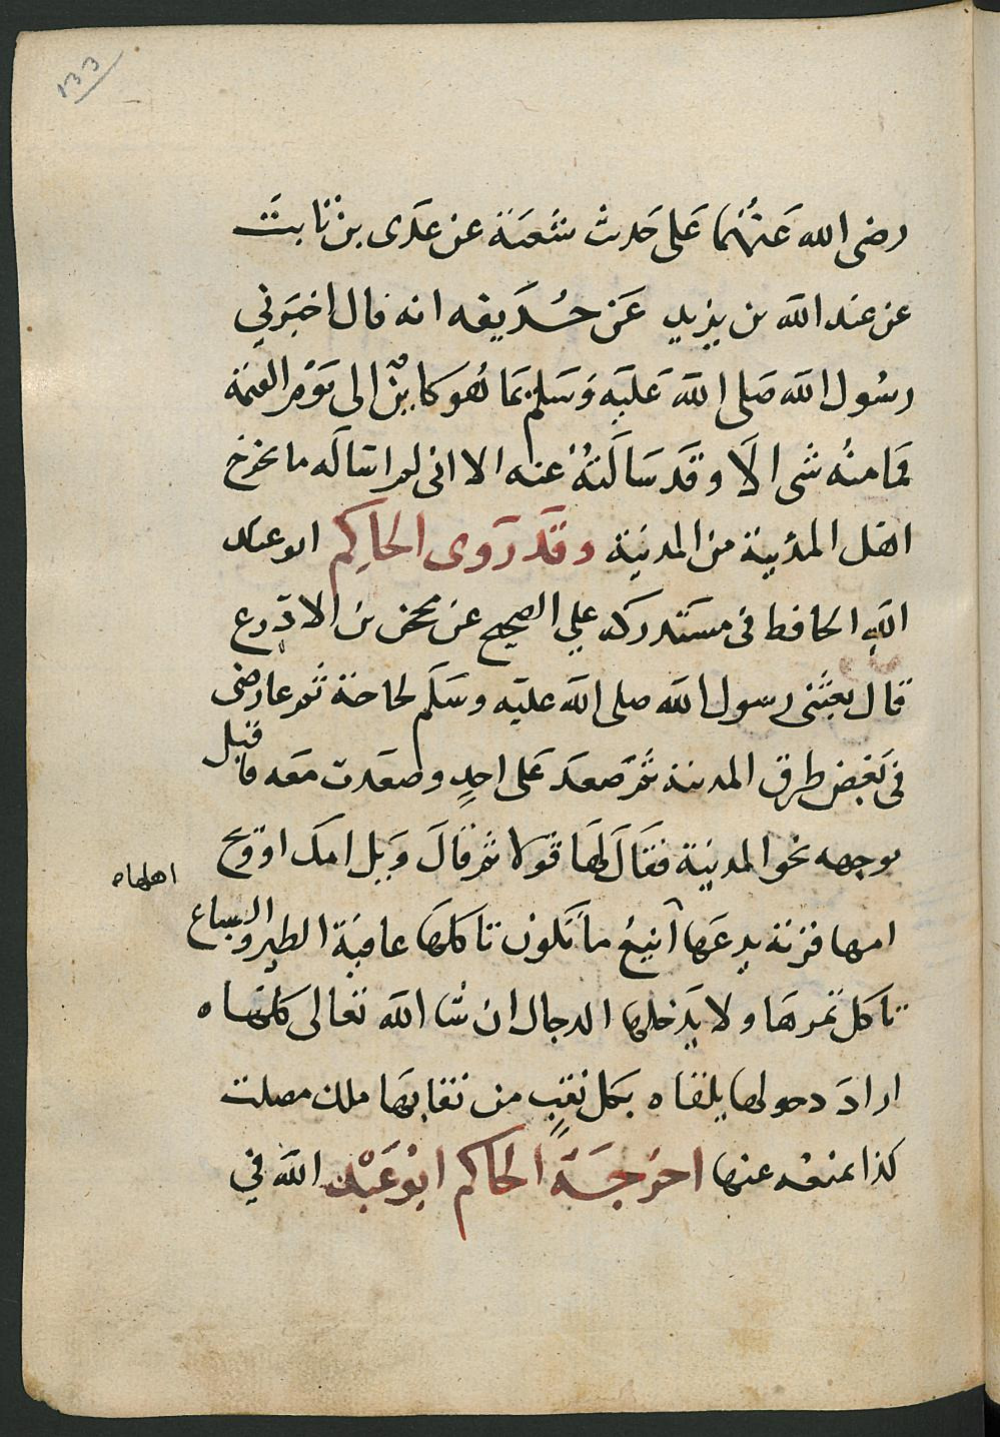 ١٣٣
رضى الله عَنْهُمَا عَلى حَديث شُعبَة عن عَدى بن ثابت
عن عبد الله بن يزيد عَن حُذَيفه انه قال اخبَرني
رسُول الله صَلى الله عَليَه وَسَلم بمَا هُوَ كاينٌ الى يَوْمِ القيمَة
فما منهُ شى الاَ وقَد سَالَتهُ عنه الا انى لم اساله ما يخرج
اهَل المدينة من المدينة وقَد رَوى الحاكِم ابو عبد
الله الحافظ فى مستَدركه علي الصحيح عن محجن بن الادرع
قال بعثَنى رسول الله صلى الله عليه وسَلَم لحاجة ثم عارضنى
فى بَعض طرق المدينة ثم صَعدَ عَلى احدٍ وصعَدت مَعه فاقبل
بوجهه نحو المدينة فقَالَ لهَا قولا ثم قالَ وَيل امك او ويح
اهلها
امها قرية يدعَها اهلها اينع ما تَكون تاكلهَا عافيَة الطير والسباع
تاكل ثمرهَا ولا يَدخلها الدجال ان شا الله تعَالى كلمَا
ارادَ دخولها يلقاه بكل نقبٍ من نقابهَا ملك مصلت
كذا يمنعَه عنها اخرَجَهَ الحاكم ابوُ عَبْد الله في